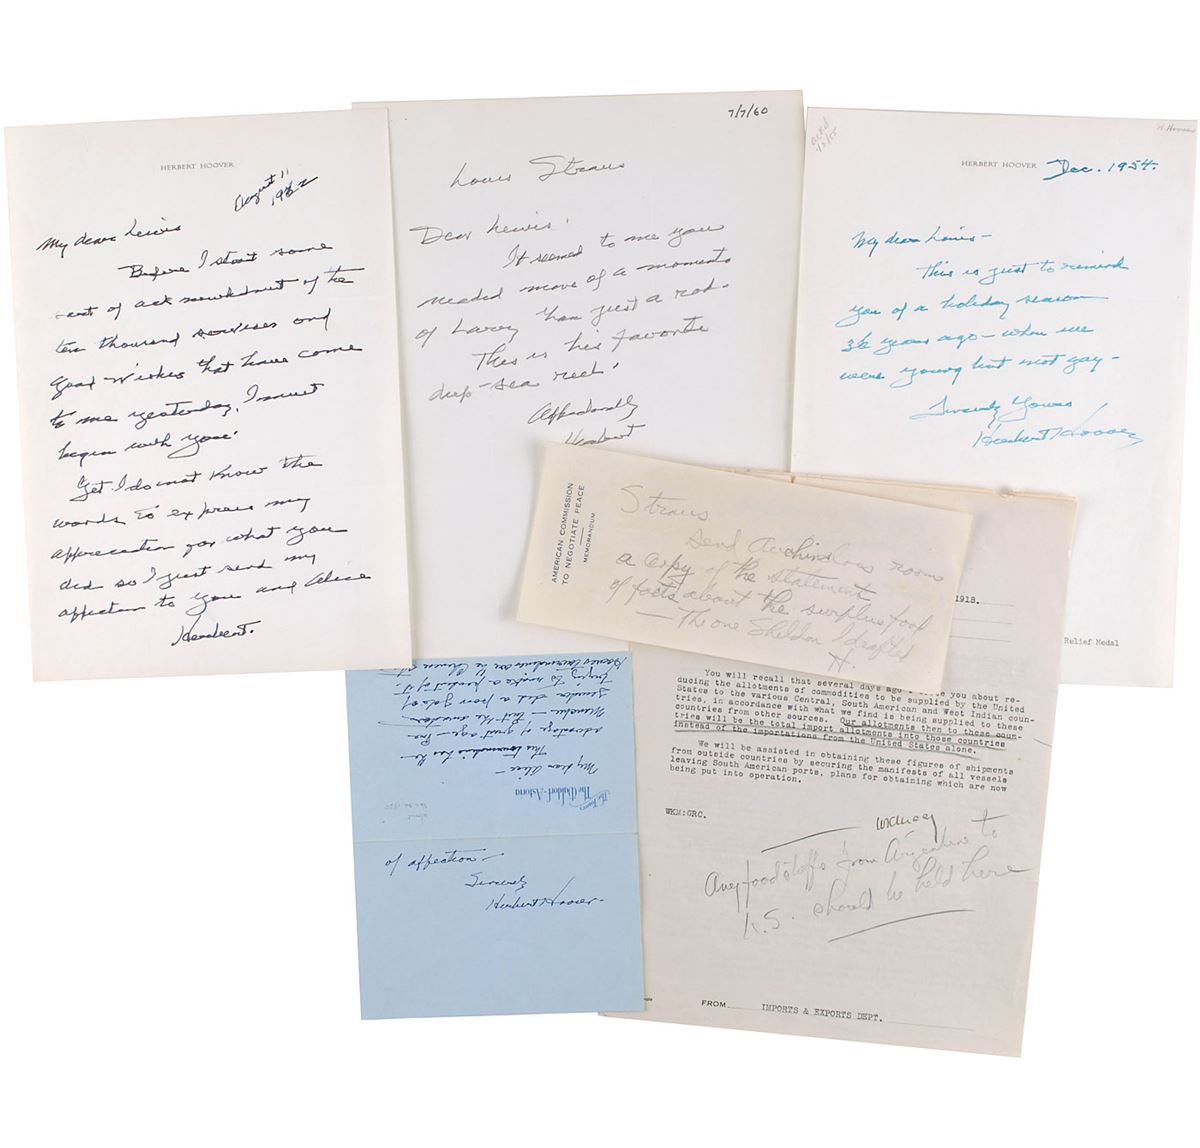 HERBERT HOOVER
August 11
My dear Lewis
Before I start some
sort of acknowledment of the
ten thousand services and
good wishes that have come
to me yesterday, I must
begin with you.
Yet I do not know the
words to express my
appreciation for what you
did so I just send my
affection to you and Alice
Herbert.
7/7/60
Lewis Straus
Dear Lewis:
It seemed to me you
needed more of a momento
of Larry than just a rod.
This is his favorite
deep-sea reel.
Affectionately
Herbert
H. Hoover
HERBERT HOOVER
Dec. 1954.
My dear Lewis—
This is just to remind
you of a holiday season
36 years ago— when we
were young but not gay—
Sincerely Yours
Herbert Hoover
AMERICAN COMMISSION
TO NEGOTIATE PEACE
MEMORANDUM
Straus
Send rooms
a copy of the statement
of facts about the surplus food
— The one Sheldon & I drafted
H.
1918.
Relief Medal
You will recall that several days ago I you about re-
ducing the allotments of commodities to be supplied by the United
States to the various Central, South American and West Indian coun-
tries, in accordance with what we find is being supplied to these
countries from other sources. Our allotments then to these coun-
tries will be the total import allotments into those countries
instead of the importations from the United States alone.
We will be assisted in obtaining these figures of shipments
from outside countries by securing the manifests of all vessels
leaving South American ports, plans for obtaining which are now
being put into operation.
WKM:GRC.
Any foodstoffs from Argentine to
U.S. should be held here
FROM IMPORTS & EXPORTS DEPT.
The Towers
The Waldorf-Astoria
My dear Alice—
This has the
advantage of great age—
but the
of affection—
Sincerely
Herbert Hoover